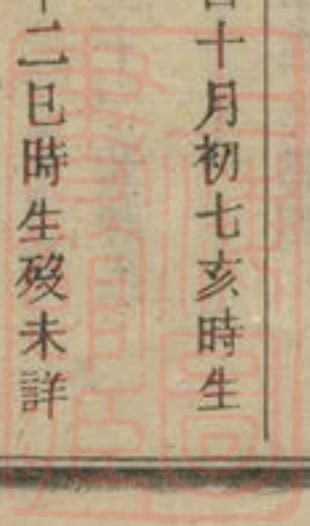 十月初七亥時生
二巳時生歿未詳